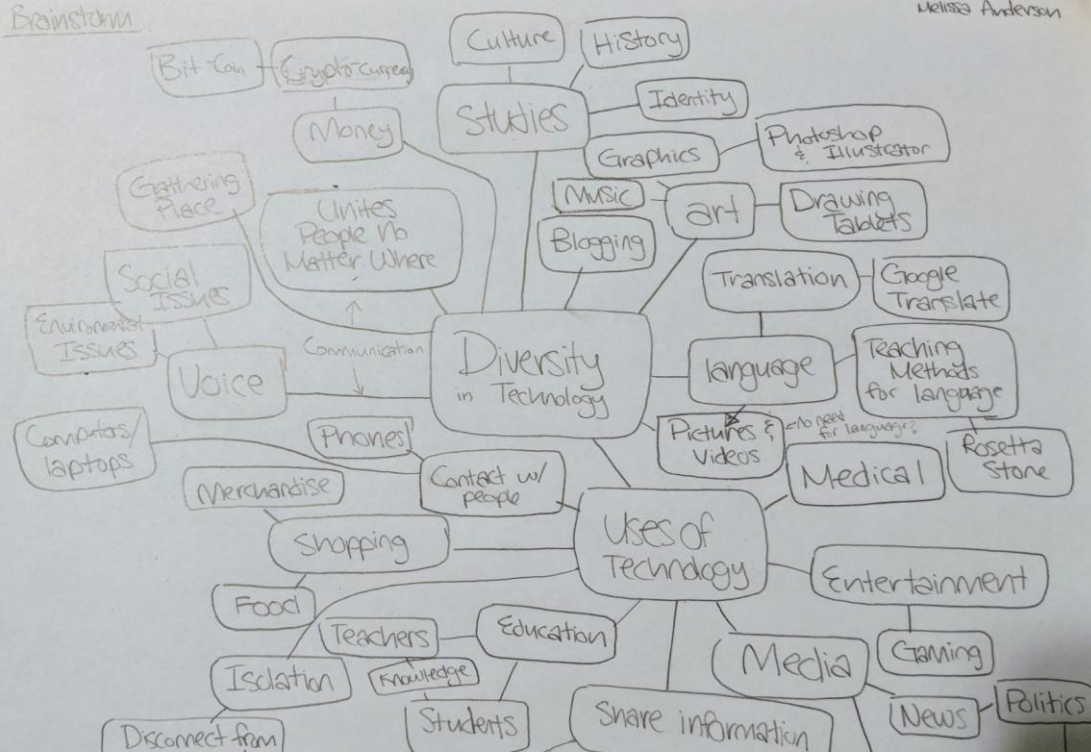 Brainstorm
Melissa Anderson
Culture
History
Bit Coin
Cryptocurrency
Studies
Identity
Money
Graphics
Photoshop
& Illustrator
Gathering
Place
Unites
People No
Matter Where
Music
art
Drawing
Tablets
Blogging
Social
Issues
Translation
Google
Translate
Environmental
Issues
Communication
Diversity
in Technology
language
Teaching
Methods
for language
Voice
Phones
Pictures &
Videos
No need
for language?
Rosetta
Stone
Computers/
laptops
Contact w/
people
Medical
Merchandise
Shopping
Uses of
Technology
Entertainment
Food
Teachers
Education
Isolation
Knowledge
Media
Gaming
Students
Share information
News
Politics
Disconnect from